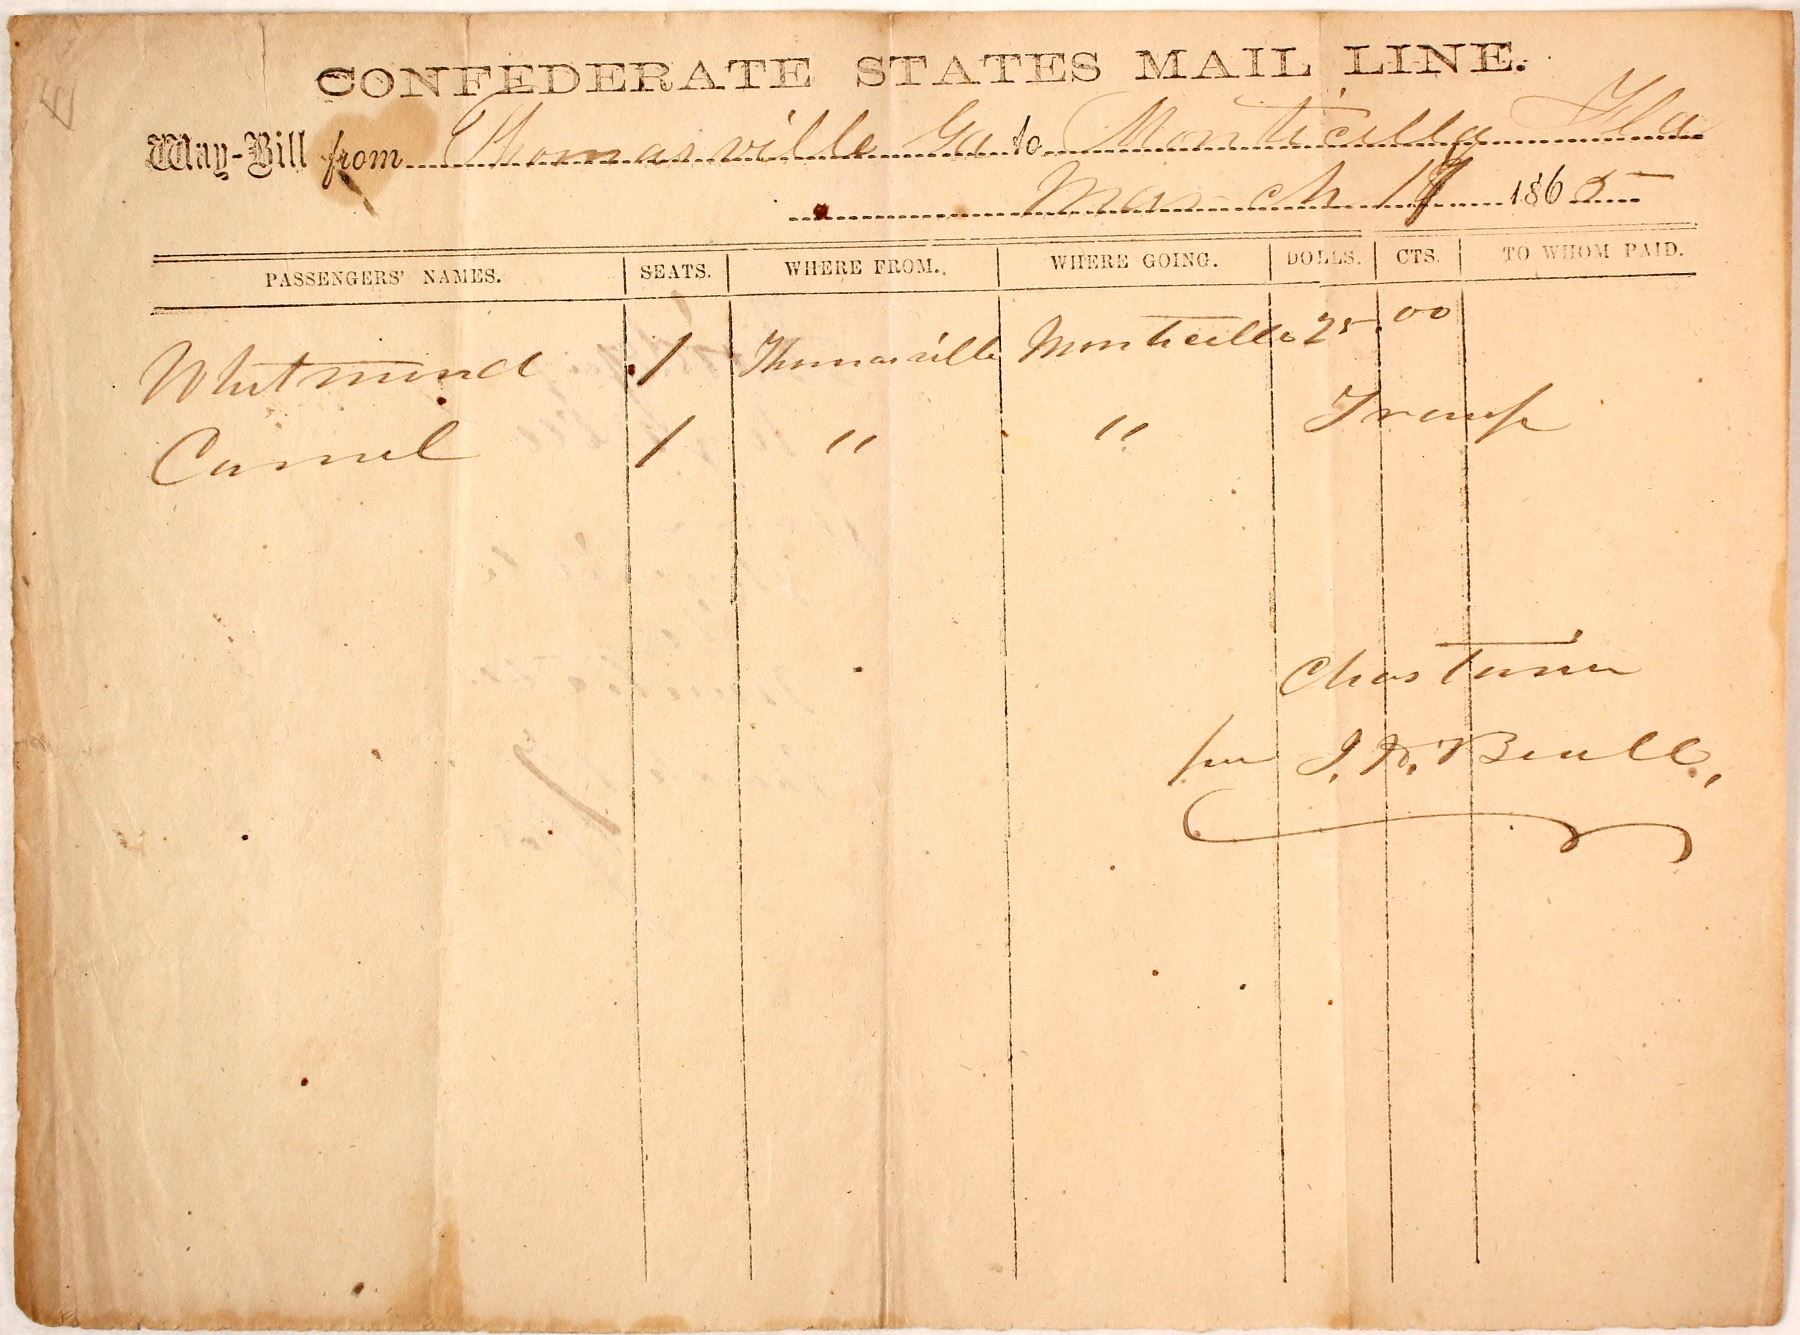 CONFEDERATE STATES MAIL LINE.
Way-Bill from Thomasville Ga to Monticello Fla
March 17 1865
PASSENGERS' NAMES. SEATS. WHERE FROM. WHERE GOING. DOLLS. CTS. TO WHOM PAID.
Whitmond 1 Thomasville Monticello 25.00
1 " " Transp
Chas Turner
for J. R. Beull.